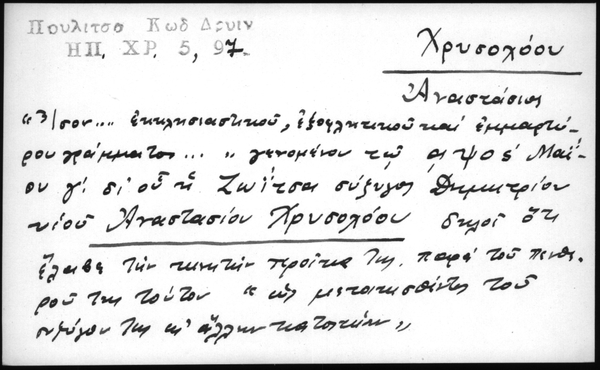 Πουλιτσα Κωδ Δρυιν
ΗΠ. ΧΡ. 5, 97.
Χρυσολόου
Ἀναστάσιος
"Ἴσον... ἐκκλησιαστικοῦ, ἐξοφλητικοῦ καί ἐμμαρτύ-
ρου γράμματος... " γενομένου τῷ αψος Μαΐ-
ου γ' δι' οὗ ἡ Ζωΐτσα σύζυγος Δημητρίου
υἱοῦ Ἀναστασίου Χρυσολόου δηλοῖ ὅτι
ἔλαβε τήν κινητήν προῖκα της, παρά τοῦ πενθε-
ροῦ της τούτου "ὡς μεταστάντος τοῦ
συζύγου της κι' ἄλλην κατοικίαν"